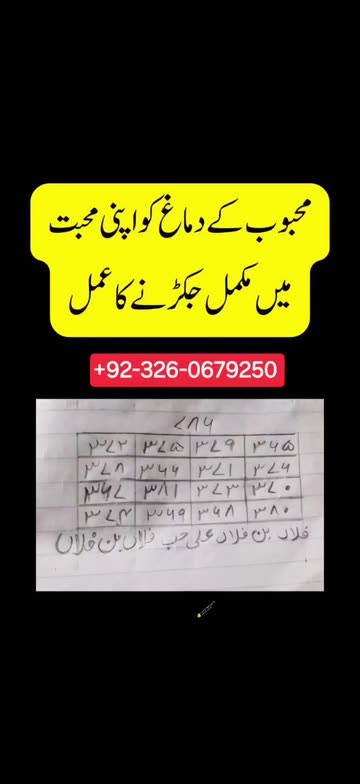 محبوب کے دماغ کو اپنی محبت
میں مکمل جکڑنے کا عمل
+92-326-0679250
۷۸۶
۳۶۵ ۳۷۹ ۳۷۵ ۳۷۲
۳۷۶ ۳۷۱ ۳۶۶ ۳۷۸
۳۷۰ ۳۷۳ ۳۸۱ ۳۶۷
۳۸۰ ۳۶۸ ۳۶۹ ۳۷۴
فلاں بن فلاں علی حب فلاں بن فلاں